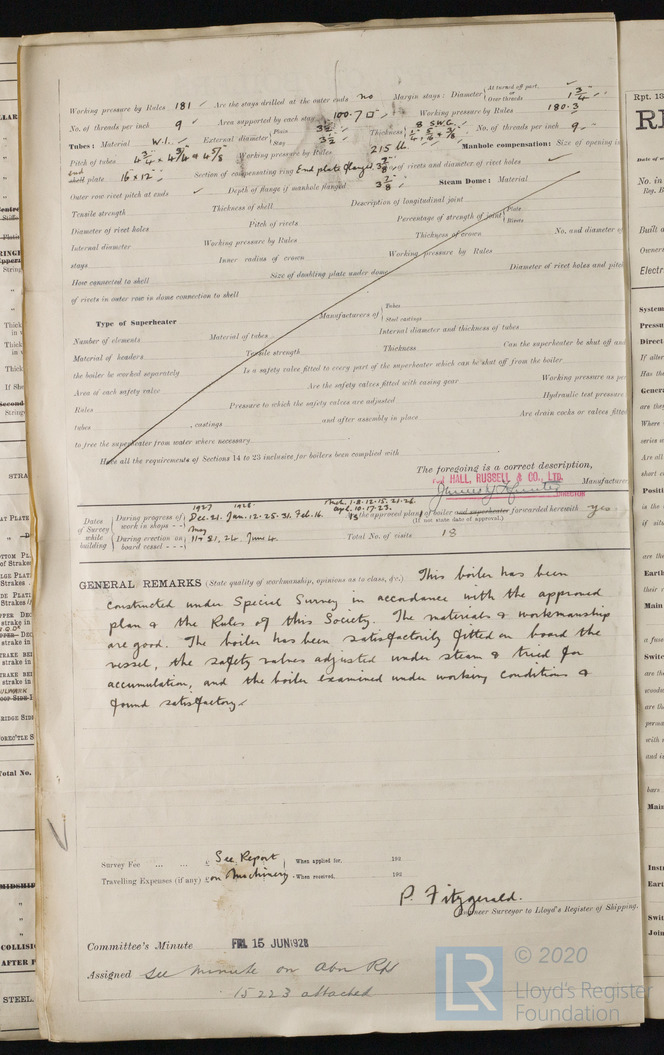 Working pressure by Rules 181 Are the stays drilled at the outer ends no Margin stays: Diameter { At turned off part, or Over threads 1 3/4"
No. of threads per inch 9 Area supported by each stay 100.7 □" Working pressure by Rules 180.3
Tubes: Material W.I. External diameter { Plain 3 1/2" Stay 3 1/2" Thickness { 8 S.W.G. No. of threads per inch 9
Pitch of tubes Working pressure by Rules 215 lb. Manhole compensation: Size of opening in
End shell plate 16 x 12" Section of compensating ring End plate flanged 3 7/8" of rivets and diameter of rivet holes
Outer row rivet pitch at ends Depth of flange if manhole flanged 3 7/8" Steam Dome: Material
Tensile strength Thickness of shell Description of longitudinal joint
Diameter of rivet holes Pitch of rivets Percentage of strength of joint { Plate Rivets
Internal diameter Working pressure by Rules Thickness of crown No. and diameter of
stays Inner radius of crown Working pressure by Rules
How connected to shell Size of doubling plate under dome Diameter of rivet holes and pitch
of rivets in outer row in dome connection to shell
Type of Superheater Manufacturers of { Tubes Steel castings
Number of elements Material of tubes Internal diameter and thickness of tubes
Material of headers Tensile strength Thickness Can the superheater be shut off and
the boiler be worked separately Is a safety valve fitted to every part of the superheater which can be shut off from the boiler
Area of each safety valve Are the safety valves fitted with easing gear Working pressure as per
Rules Pressure to which the safety valves are adjusted Hydraulic test pressure
tubes , castings and after assembly in place Are drain cocks or valves fitted
to free the superheater from water where necessary
Have all the requirements of Sections 14 to 23 inclusive for boilers been complied with
The foregoing is a correct description,
HALL, RUSSELL & CO., LTD. Manufacturer
DIRECTOR
Dates of Survey while building { During progress of work in shops - - } 1927 Dec. 21. 1928. Jan. 12. 25. 31. Feb. 16. Mch. 1. 8. 12. 15. 21. 26. Apl. 10. 17. 23. Is the approved plan of boiler and superheater forwarded herewith yes
(If not state date of approval.)
{ During erection on board vessel - - - } May 11 & 21, 24. June 4. Total No. of visits 18
GENERAL REMARKS (State quality of workmanship, opinions as to class, &c.) This boiler has been
constructed under Special Survey in accordance with the approved
plan & the Rules of this Society. The materials & workmanship
are good. The boiler has been satisfactorily fitted on board the
vessel, the safety valves adjusted under steam & tried for
accumulation, and the boiler examined under working conditions &
found satisfactory.
Survey Fee ... ... £ See Report When applied for, 192
Travelling Expenses (if any) £ on Machinery When received, 192
P. Fitzgerald.
Engineer Surveyor to Lloyd's Register of Shipping.
Committee's Minute FRI. 15 JUN 1928
Assigned See Minute on Abn Rpt
15223 attached
LR © 2020
Lloyd's Register
Foundation